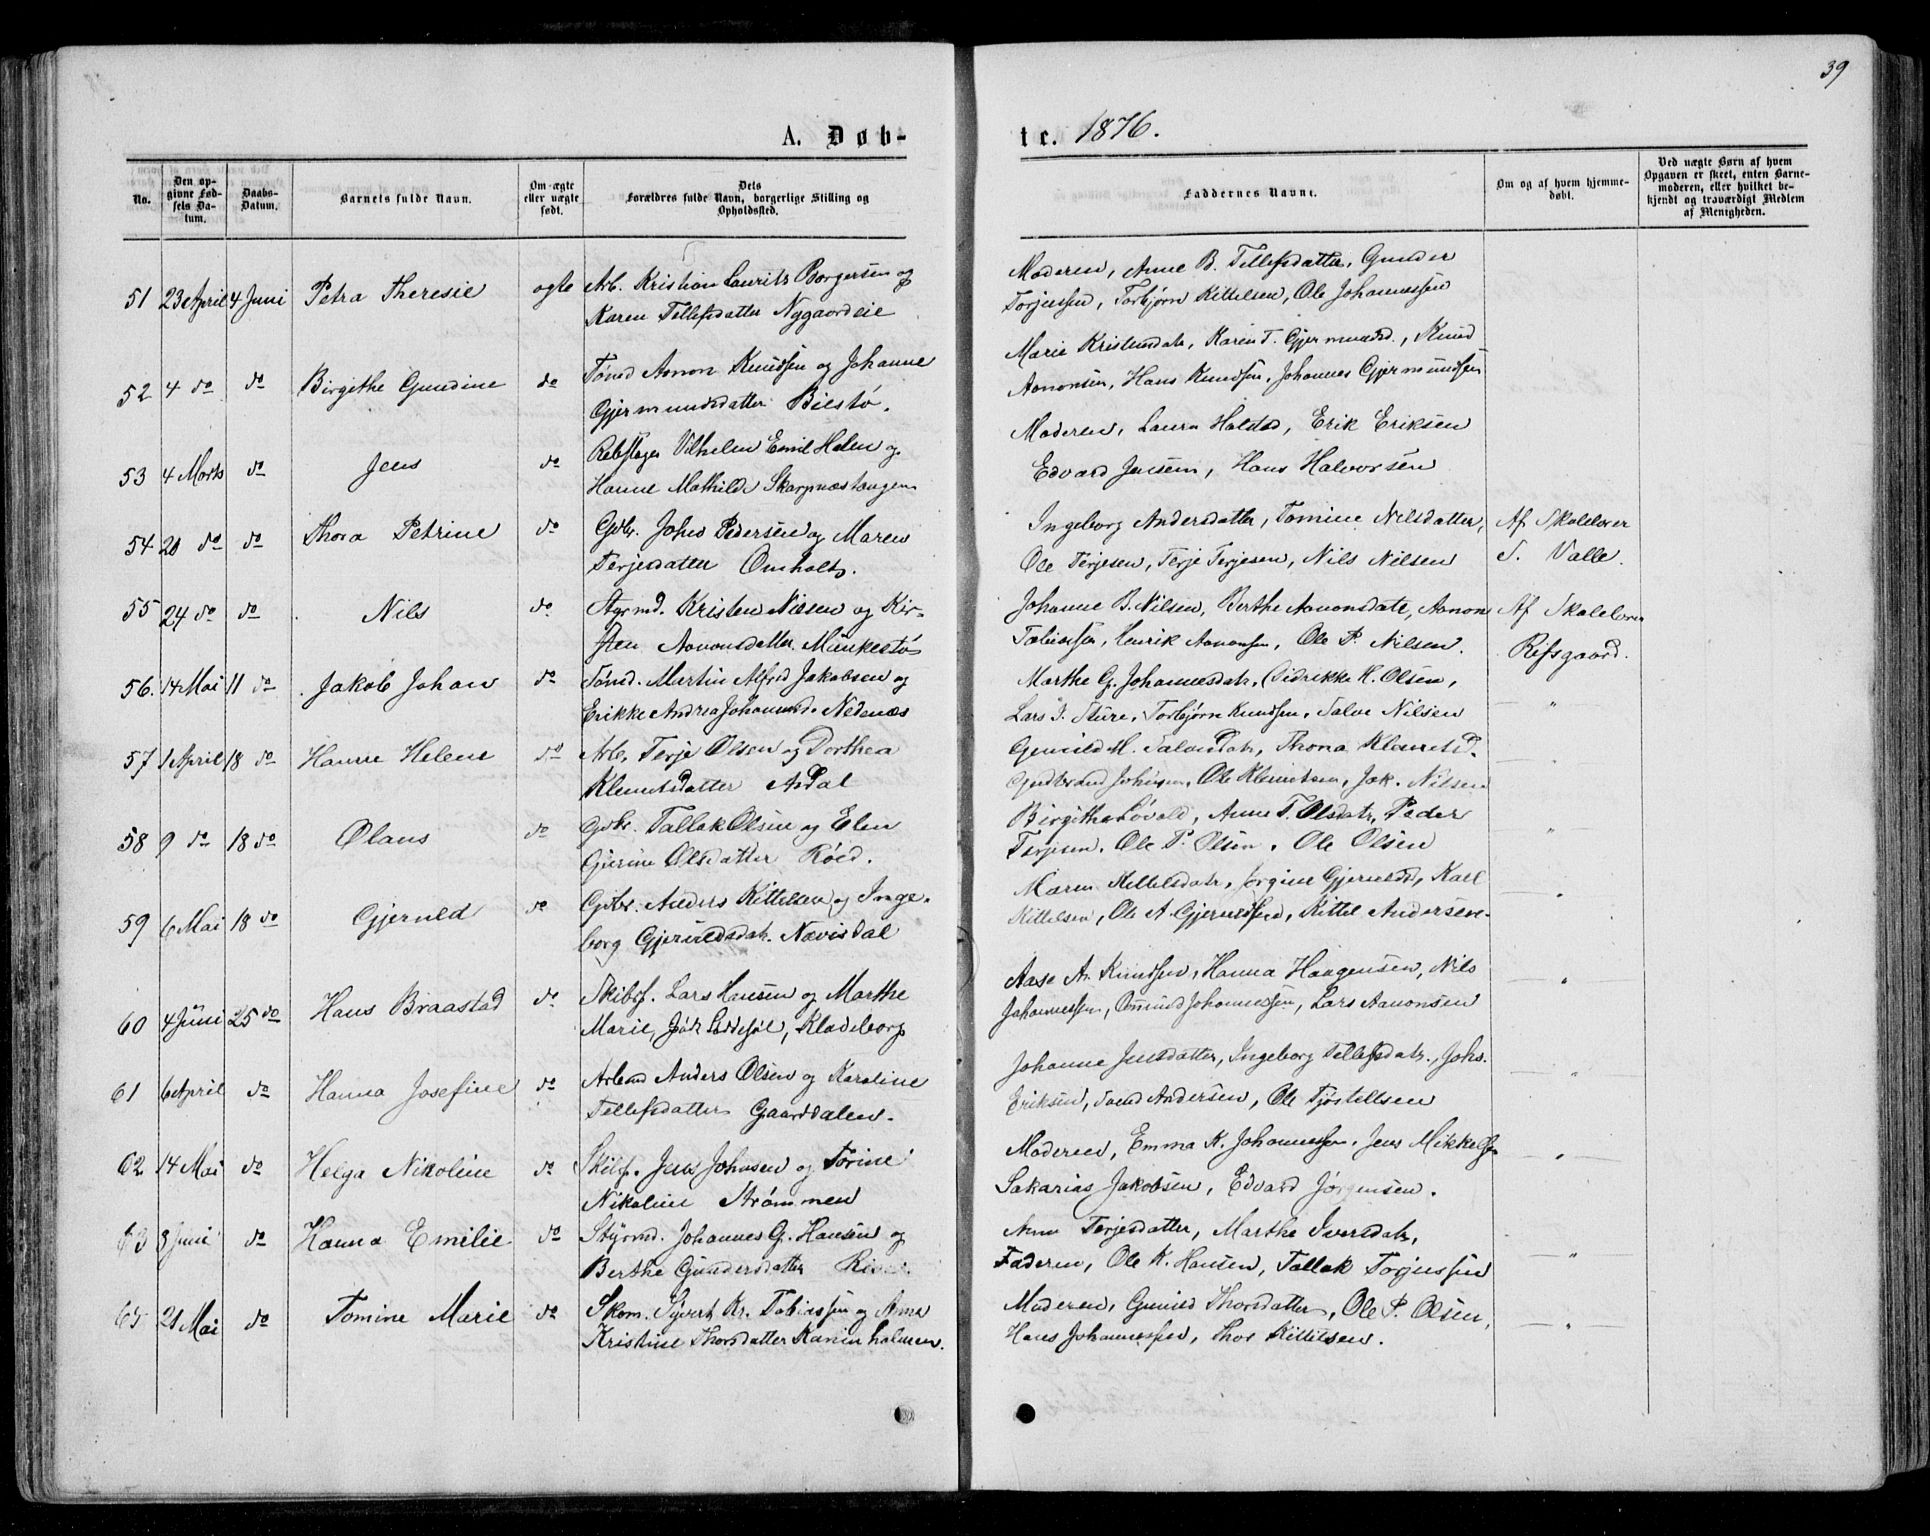 39
A. Døb-
te. 1876.
No.
Den op-
givne Fød-
sels Da-
tum.
Daabs-
Datum.
Barnets fulde Navn.
Om ægte
eller uægte
født.
Dets
Forældres fulde Navn, borgerlige Stilling og
Opholdssted.
Faddernes Navne.
Om og af hvem hjemme-
døbt.
Ved uægte Børn af hvem
Opgaven er skeet, enten Barne-
moderen, eller hvilket be-
kjendt og troværdigt Medlem
af Menigheden.
51 23 April 4 Juni Petra Theresie ægte Arb. Kristian Laurits Borgersen og
Karen Tellefsdatter Nygaardeie
Moderen, Anne B. Tellefsdatter, Gunder
Torjussen, Torbjørn Kittelsen, Ole Johannessen
52 4 do do Birgithe Gundine do Tømd Aanon Knudsen og Johanne
Gjermundsdatter Bilstø.
Marie Kristensdatr, Karen T. Gjermundsd., Knud
Aanonsen, Hans Knudsen, Johannes Gjermundsen
53 4 Marts do Jens do Rebslager Vilhelm Emil Holm og
Hanne Mathilde Skarpnæstangen
Moderen, Laura Halstad, Erik Eriksen
Edvard Jensen, Hans Halvorsen
54 20 do do Thora Petrine do Gdbr. Johs Pedersen og Maren
Terjesdatter Omholt.
Ingeborg Andersdatter, Tomine Nilsdatter,
Ole Terjesen, Terje Terjesen, Nils Nilsen
Af Skolelærer
S. Valle.
55 24 do do Nils do Styrmd. Kristen Nilsen og Kir-
sten Aanonsdatter Munkestø
Johanne B. Nilsen, Berthe Aanonsdatr, Aanon
Tobiassen, Henrik Aanonsen, Ole P. Nilsen.
Af Skolelærer
Refsgaard.
56. 14 Mai 11 do Jakob Johan do Tømd. Martin Alfred Jakobsen og
Erikke Andrea Johannesd. Nedenæs
Marthe G. Johannesdatr, Didrikke K. Olsen,
Lars J. Sture, Torbjørn Knudsen, Salve Nilsen
"
57 1 April 18 do Hanne Helene do Arb. Terje Olsen og Dorthea
Klemetsdatter Asdal
Gunild M. Salvesdatr, Thona Klemetsd.
Gudbrand Johnsen, Ole Klemetsen, Jak. Nilsen
"
58 9 do 18 do Olaus do Gdbr. Tallak Olsen og Elen
Gjerine Olsdatter Røed.
Birgithe Løvold, Anne T. Olsdatr, Peder
Terjesen, Ole P. Olsen, Ole Olsen
"
59 6 Mai 18 do Gjeruld do Gdbr. Anders Kittelsen og Inge-
borg Gjeruldsdatr. Nævisdal
Maren Kittelsdatr, Jørgine Gjeruldsd, Karl
Kittelsen, Ole A. Gjeruldsen, Kittel Andersen.
"
60 4 Juni 25 do Hans Braastad do Skibsf. Lars Hansen og Marthe
Marie, født Løddesøl, Kladeborg
Aase A. Knudsen, Hanna Haagensen, Nils
Johannessen, Omund Johannessen, Lars Aanonsen
"
61 6 April do Hanna Josefine do Arbmd Anders Olsen og Karoline
Tellefsdatter Gaarddalen.
Johanne Jensdatter, Ingeborg Tellefsdatr., Johs.
Eriksen, Svend Andersen, Ole Tjøstellsen
"
62 14 Mai do Helga Nikoline do Skibsf. Jens Johnsen og Torine
Nikoline Strømmen
Moderen, Emma K. Johannessen, Jens Mikkelsen
Sakarias Jakobsen, Edvard Jørgensen.
"
63 3 Juni do Hanna Emilie do Styrmd. Johannes G. Hansen og
Berthe Gundersdatter
Anne Terjesdatter, Marthe Iversdatr,
Faderen, Ole K. Hansen, Tallak Torjussen
"
65 21 Mai do Tomine Marie do Skom. Sivert Kr. Tobiassen og Anne
Kristine Thorsdatter Kaninholmen.
Moderen, Gunild Thorsdatter, Ole P. Olsen,
Hans Johannessen, Thor Kittelsen.
"